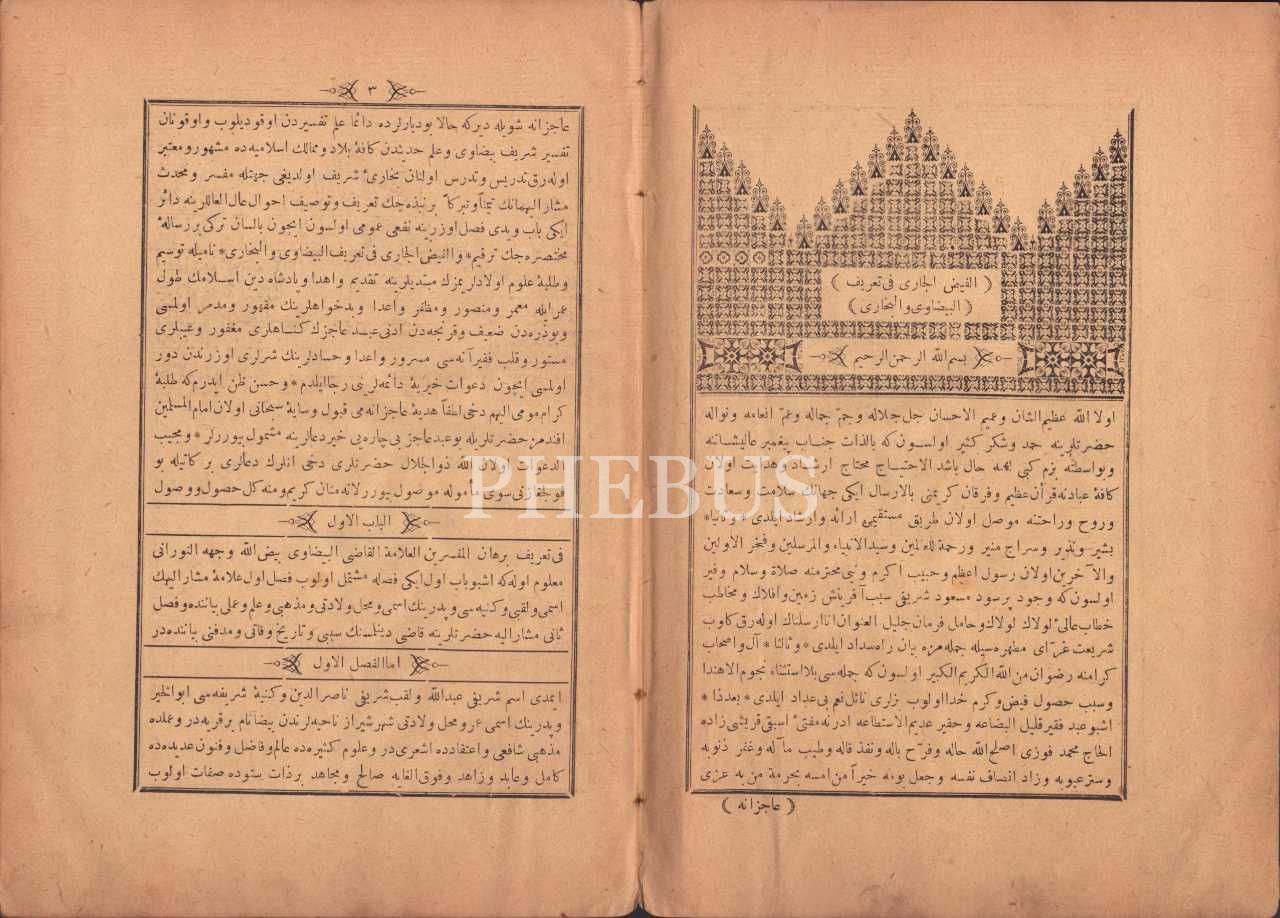 ( الفيض الجارى فى تعريف )
( البيضاوى والبخارى )
بسم الله الرحمن الرحيم
اولا الله عظيم الشان وعميم الاحسان جل جلاله وجم جماله وعم انعامه ونواله
حضرتلرينه حمد وشكر كثير اولسون كه بالذات جناب پيغمبر عاليشاننه
وبواسطته بزم كبى همه حال باشد الاحتياج محتاج ارشاد وهدايت اولان
كافهٔ عبادنه قرآن عظيم وفرقان كريمنى بالارسال ايكى جهانك سلامت وسعادت
وروح وراحتنه موصل اولان طريق مستقيمى ارائه وارشاد ايلدى * وثانيا *
بشير ونذير وسراج منير ورحمة للعالمين وسيد الانبياء والمرسلين وفخر الاولين
والآخرين اولان رسول اعظم وحبيب اكرم ونبى محترمنه صلاة وسلام وفير
اولسون كه وجود پرسود مسعود شريفى سبب آفرينش زمين وافلاك ومخاطب
خطاب عالىٔ لولاك لولاك وحامل فرمان جليل العنوان انا ارسلناك اوله رق كلوب
شريعت غراى مطهره سيله جمله مزه بيان راه سداد ايلدى * وثالثا * آل واصحاب
كرامنه رضوان من الله الكريم الكبير اولسون كه جمله سى بلا استثناء نجوم الاهتدا
وسبب حصول فيض وكرم خدا اولوب نزلرى نائل نعم بى عداد ايلدى * بعد ذا *
اشبو عبد فقير قليل البضاعه وحقير عديم الاستطاعه ادرنه مفتىٔ اسبقى قريشى زاده
الحاج محمد فوزى اصلح الله حاله وفرح باله ونفذ قاله وطيب مآله وغفر ذنوبه
وستر عيوبه وزاد انصاف نفسه وجعل يومه خيرا من امسه بحرمة من به عزى
( عاجزانه )
٣
عاجزانه شويله ديركه حالا بوديارلرده دائما علم تفسيردن اوقوديلوب واوقونان
تفسير شريف بيضاوى وعلم حديثدن كافهٔ بلاد وممالك اسلاميه ده مشهور ومعتبر
اوله رق تدريس وتدرس اولنان بخارىٔ شريف اولديغى جهتله مفسر ومحدث
مشار اليهمانك تيمنا وتبركا برنبذه جك تعريف وتوصيف احوال عال العاللرينه دائر
ايكى باب ويدى فصل اوزرينه نفعى عمومى اولسون ايچون بالسان تركى بررسالهٔ
مختصره جك ترقيم * والفيض الجارى فى تعريف البيضاوى والبخارى * ناميله توسيم
وطلبهٔ علوم اولادلريمزك مبتديلرينه تقديم واهدا وپادشاه دين اسلامك طول
عمرايله معمر ومنصور ومظفر واعدا وبدخواهلرينك مقهور ومدمر اولمسى
وبوذره دن ضعيف وقرنجه دن ادنى عبد عاجزك كناهلرى مغفور وعيبلرى
مستور وقلب فقيرانه سى مسرور واعدا وحسادلرينك شرلرى اوزرندن دور
اولمسى ايچون دعوات خيريهٔ دائمه لرنى رجا ايلدم * وحسن ظن ايدرم كه طلبهٔ
كرام مومى اليهم دخى لطفا هديهٔ عاجزانه مى قبول وسايهٔ سبحانى اولان امام المسلمين
افندمز حضرتلريله بوعبد عاجز بى چاره يى خير دعالرينه مشمول بيوررلر * ومجيب
الدعوات اولان الله ذوالجلال حضرتلرى دخى انلرك دعالرى بركاتيله بو
قولجغازنى سوى مأموله موصول بيوررلر انه منان كريم ومنه كل حصول ووصول
الباب الاول
فى تعريف برهان المفسرين العلامة القاضى البيضاوى بيض الله وجهه النورانى
معلوم اوله كه اشبو باب اول ايكى فصله مشتمل اولوب فصل اول علامهٔ مشار اليهك
اسمى ولقبى وكنيه سى وپدرينك اسمى ومحل ولادتى ومذهبى وعلم وعملى بياننده وفصل
ثانى مشار اليه حضرتلرينه قاضى دينلمسنك سببى وتاريخ وفاتى ومدفنى بياننده در
اما الفصل الاول
ايمدى اسم شريفى عبد الله ولقب شريفى ناصر الدين وكنيهٔ شريفه سى ابوالخير
وپدرينك اسمى عمر ومحل ولادتى شهر شيراز ناحيه لرندن بيضا نام برقريه در وعملده
مذهبى شافعى واعتقادده اشعرى در وعلوم كثيره ده عالم وفاضل وفنون عديده ده
كامل وعابد وزاهد وفوق الغايه صالح ومجاهد برذات ستوده صفات اولوب
PHEBUS